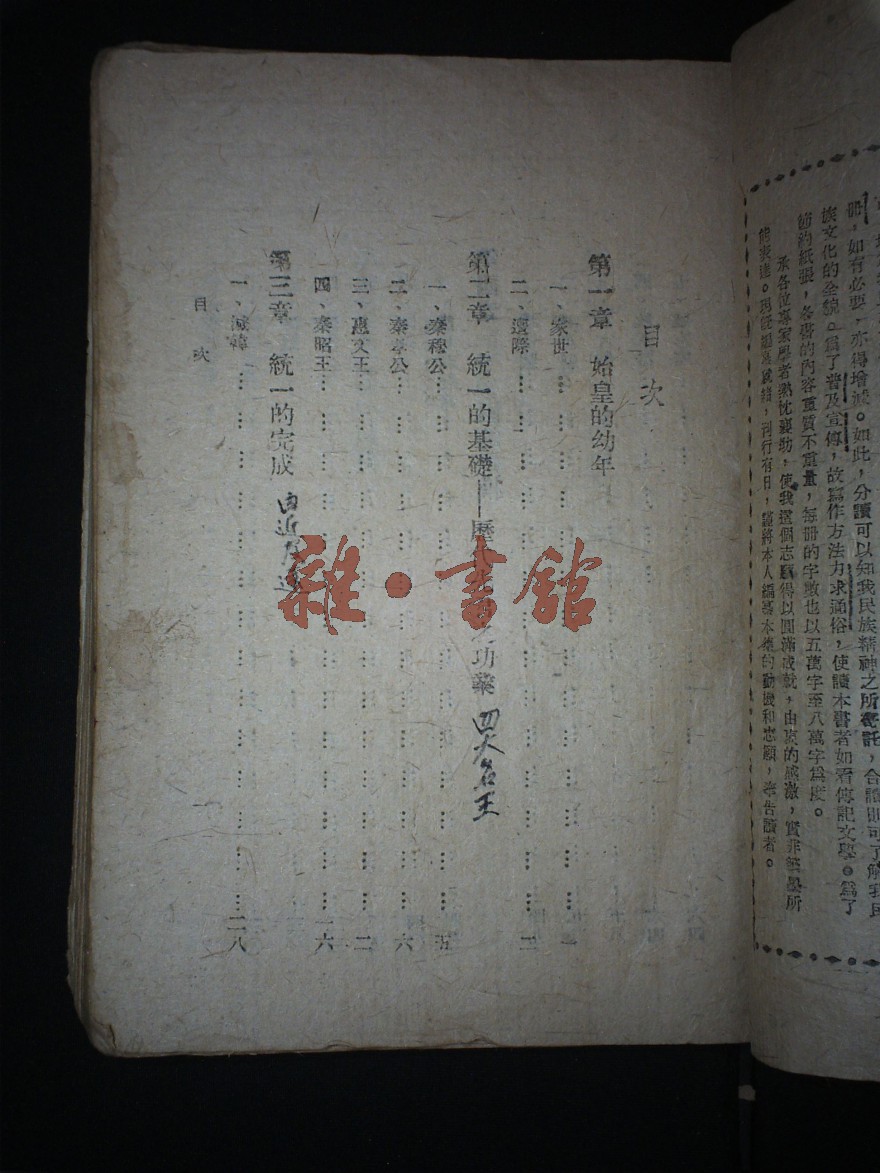 冊，如有必要，亦得增減。如此，分讀可以知我民族精神之所寄託，合讀即可了解我民
族文化的全貌。爲了普及宣傳，故寫作方法力求通俗，使讀本書者如看傳記文學。爲了
節約紙張，各書的內容重質不重量，每冊的字數也以五萬字至八萬字爲度。
承各位專家學者熱忱襄助，使我這個志願得以圓滿成就，由衷的感激，實非筆墨所
能表達。現既組織就緒，刊行有日，謹將本人編纂本集的動機和志願，奉告讀者。
目次
第一章 始皇的幼年
一、家世……………………………一
二、還際……………………………二
第二章 統一的基礎——歷代 功業 四大名王
一、秦穆公……………………………五
二、秦孝公……………………………六
三、惠文王……………………………二
四、秦昭王……………………………一六
第三章 統一的完成 由近及遠
一、滅韓……………………………二八
目次
雜·書館